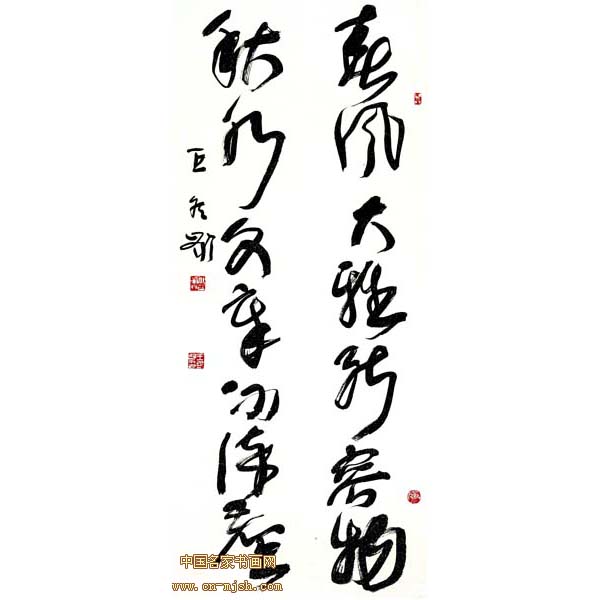 春风大雅能容物
秋水文章不染尘
中国名家书画网
www.cn-mjsh.com